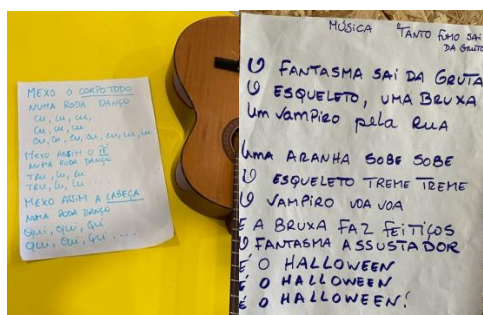 MEXO O CORPO TODO
NUMA RODA DANÇO
CU, CU, CU,
CU, CU, CU
CU, CU, CU, CU, CU, CU, CU
MEXO ASSIM O PÉ
NUMA RODA DANÇO
TRU, LU, LU
TRU, LU, LU....
MEXO ASSIM A CABEÇA
NUMA RODA DANÇO
QUI, QUI, QUI
QUI, QUI, QUI....
MÚSICA "TANTO FUMO SAI
DA GRUTA
O FANTASMA SAI DA GRUTA
O ESQUELETO, UMA BRUXA
UM VAMPIRO pela RUA
UMA ARANHA SOBE SOBE
O ESQUELETO TREME TREME
O VAMPIRO VOA VOA
E A BRUXA FAZ FEITIÇOS
O FANTASMA ASSUSTADOR
É O HALLOWEEN
É O HALLOWEEN
É O HALLOWEEN!